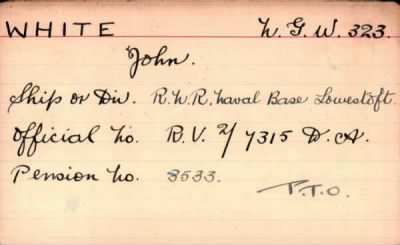 WHITE N.G.W. 323.
John.
Ship or Div. R.N.R. Naval Base Lowestoft.
Official No. R.V. 2/7315 D.A.
Pension No. 3533.
P.T.O.